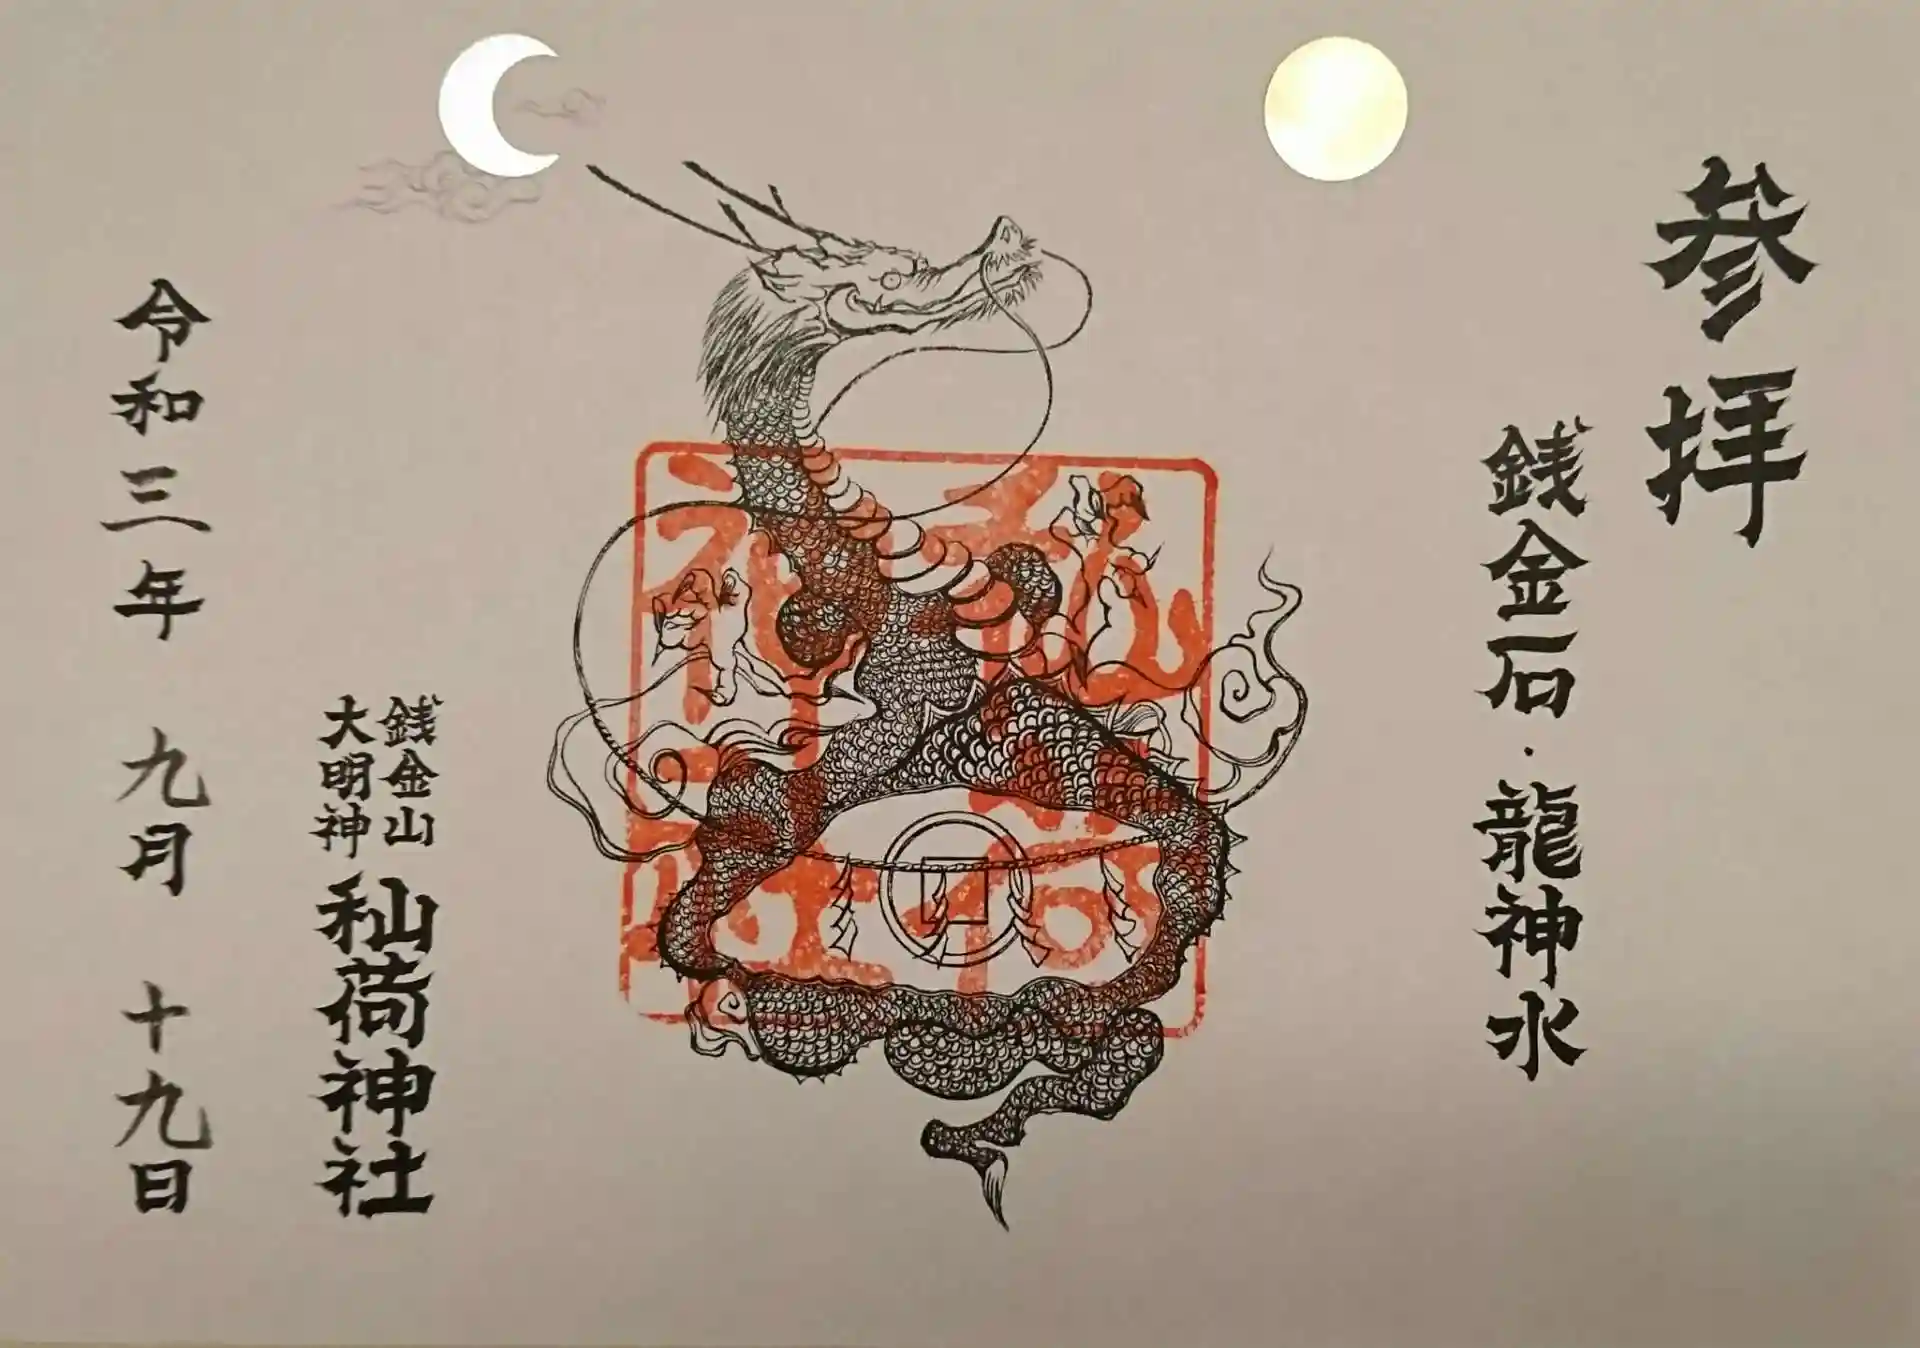 参拝
銭金石・龍神水
銭金山
大明神
秈荷神社
令和三年 九月 十九日
秈荷
神社